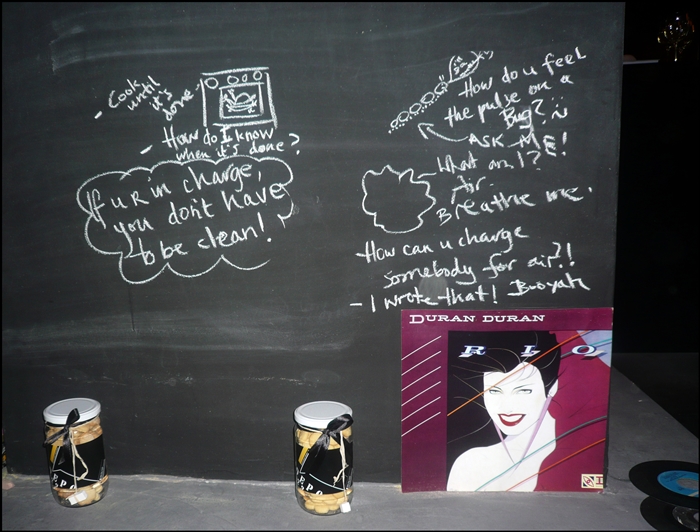 - Cook
until
it's
done
- How do I know
when it's done?
If u R in charge,
you don't have
to be clean!
How do u feel
the pulse on a
Bug?
ASK ME!
What am I?
Air.
Breathe me.
How can u charge
somebody for air?!
- I wrote that! Booyah
DURAN DURAN
RIO